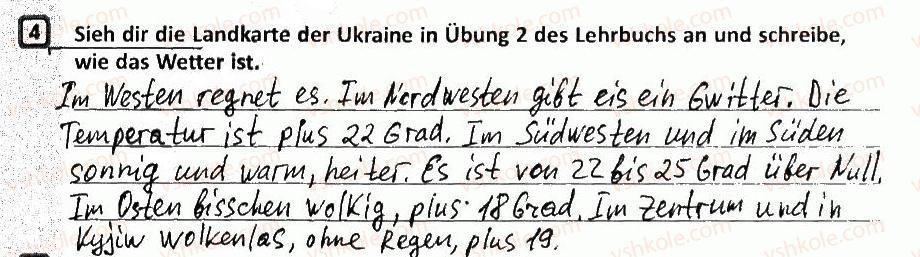 4 Sieh dir die Landkarte der Ukraine in Übung 2 des Lehrbuchs an und schreibe,
wie das Wetter ist.
Im Westen regnet es. Im Nordwesten gibt eis ein Gwitter. Die
Temperatur ist plus 22 Grad. Im Südwesten und im Süden
sonnig und warm, heiter. Es ist von 22 bis 25 Grad über Null.
Im Osten bisschen wolkig, plus 18 Grad. Im Zentrum und in
Kyjiw wolkenlas, ohne Regen, plus 19.